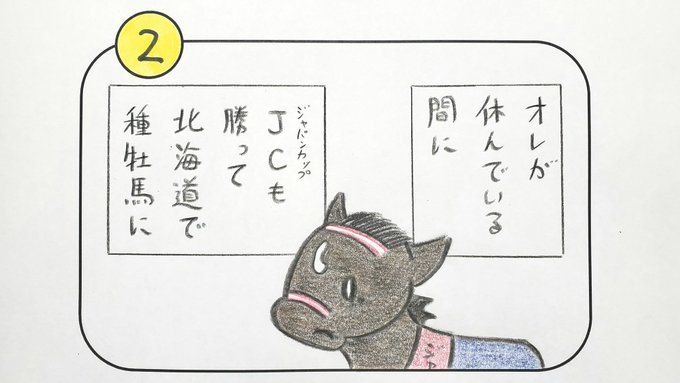 2
オレが
休んでいる
間に
ジャパンカップ
JCも
勝って
北海道で
種牡馬に
ジャ